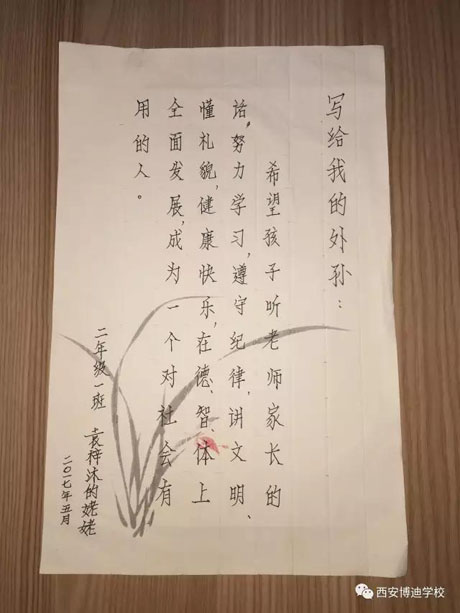 写给我的外孙：
希望孩子听老师家长的
话，努力学习，遵守纪律，讲文明、
懂礼貌，健康快乐，在德、智、体上
全面发展，成为一个对社会有
用的人。
二年级一班 袁梓沐的姥姥
二〇一七年五月
西安博迪学校